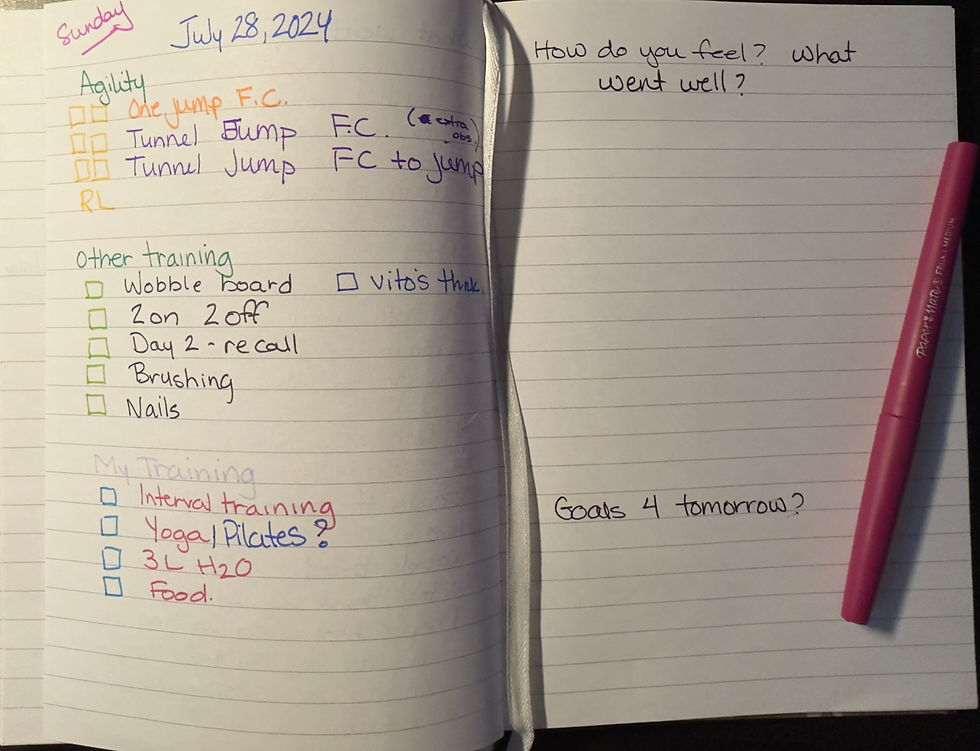 Sunday
July 28, 2024
Agility
One jump F.C.
Tunnel Jump F.C. (extra obs.)
Tunnel Jump FC to jump
RL
Other training
Wobble board
vito's
2 on 2 off
Day 2 - recall
Brushing
Nails
My Training
Interval training
Yoga/Pilates?
3L H2O
Food.
How do you feel? What
went well?
Goals 4 tomorrow?
Paper Mate